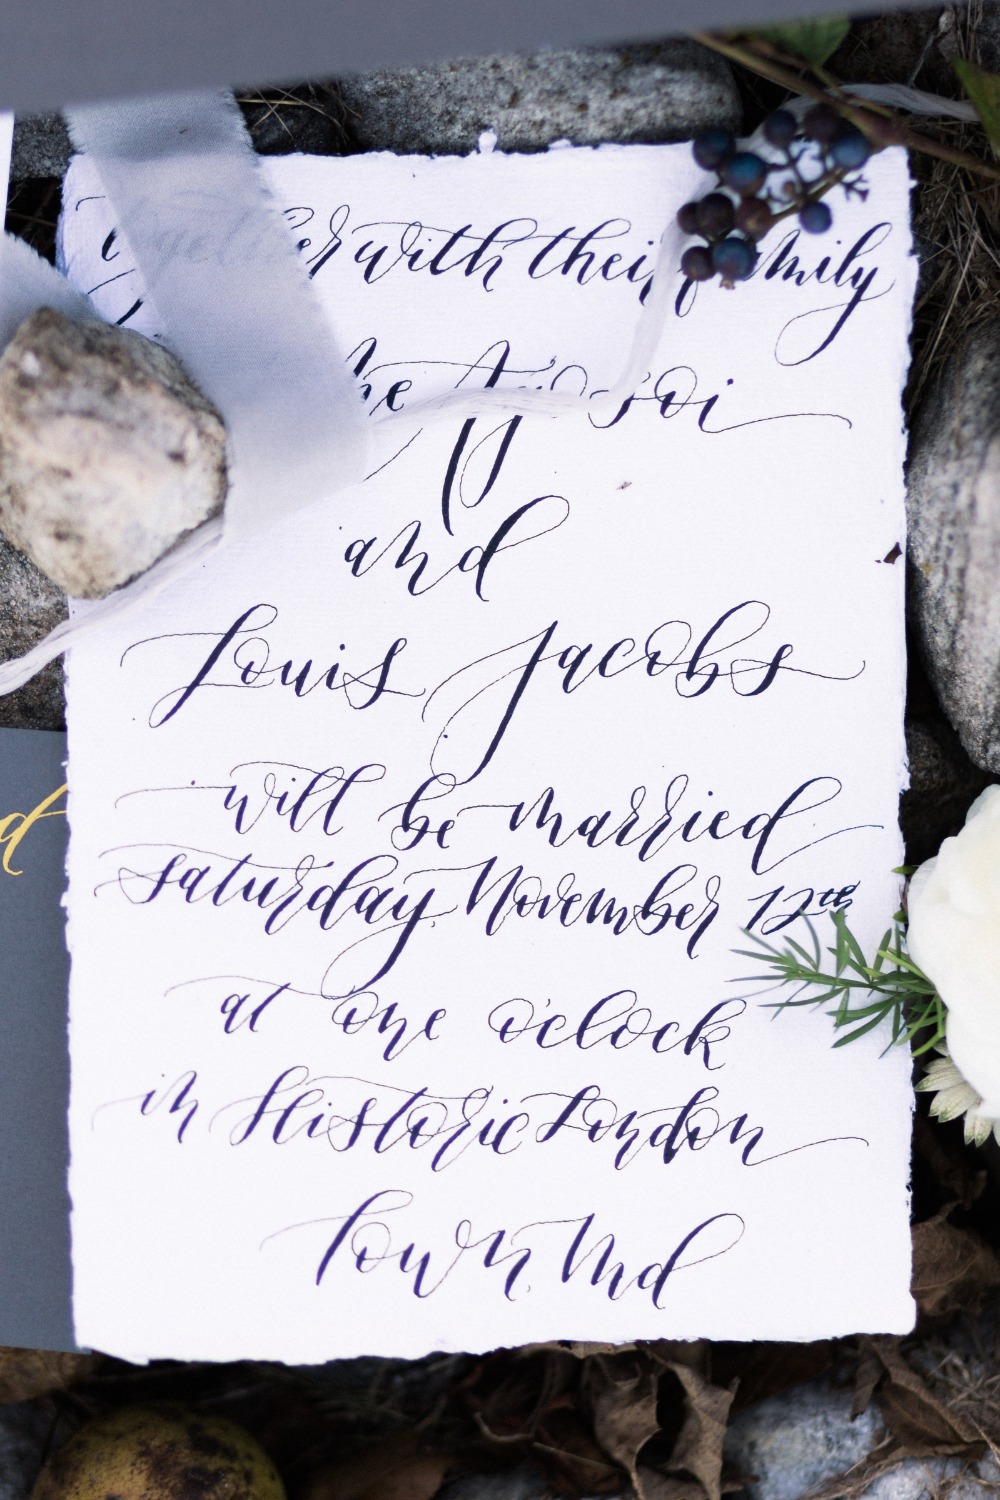 together with their family
and
Louis Jacobs
will be married
saturday, November 12th
at one o'clock
in Historic London
Town, Md
d